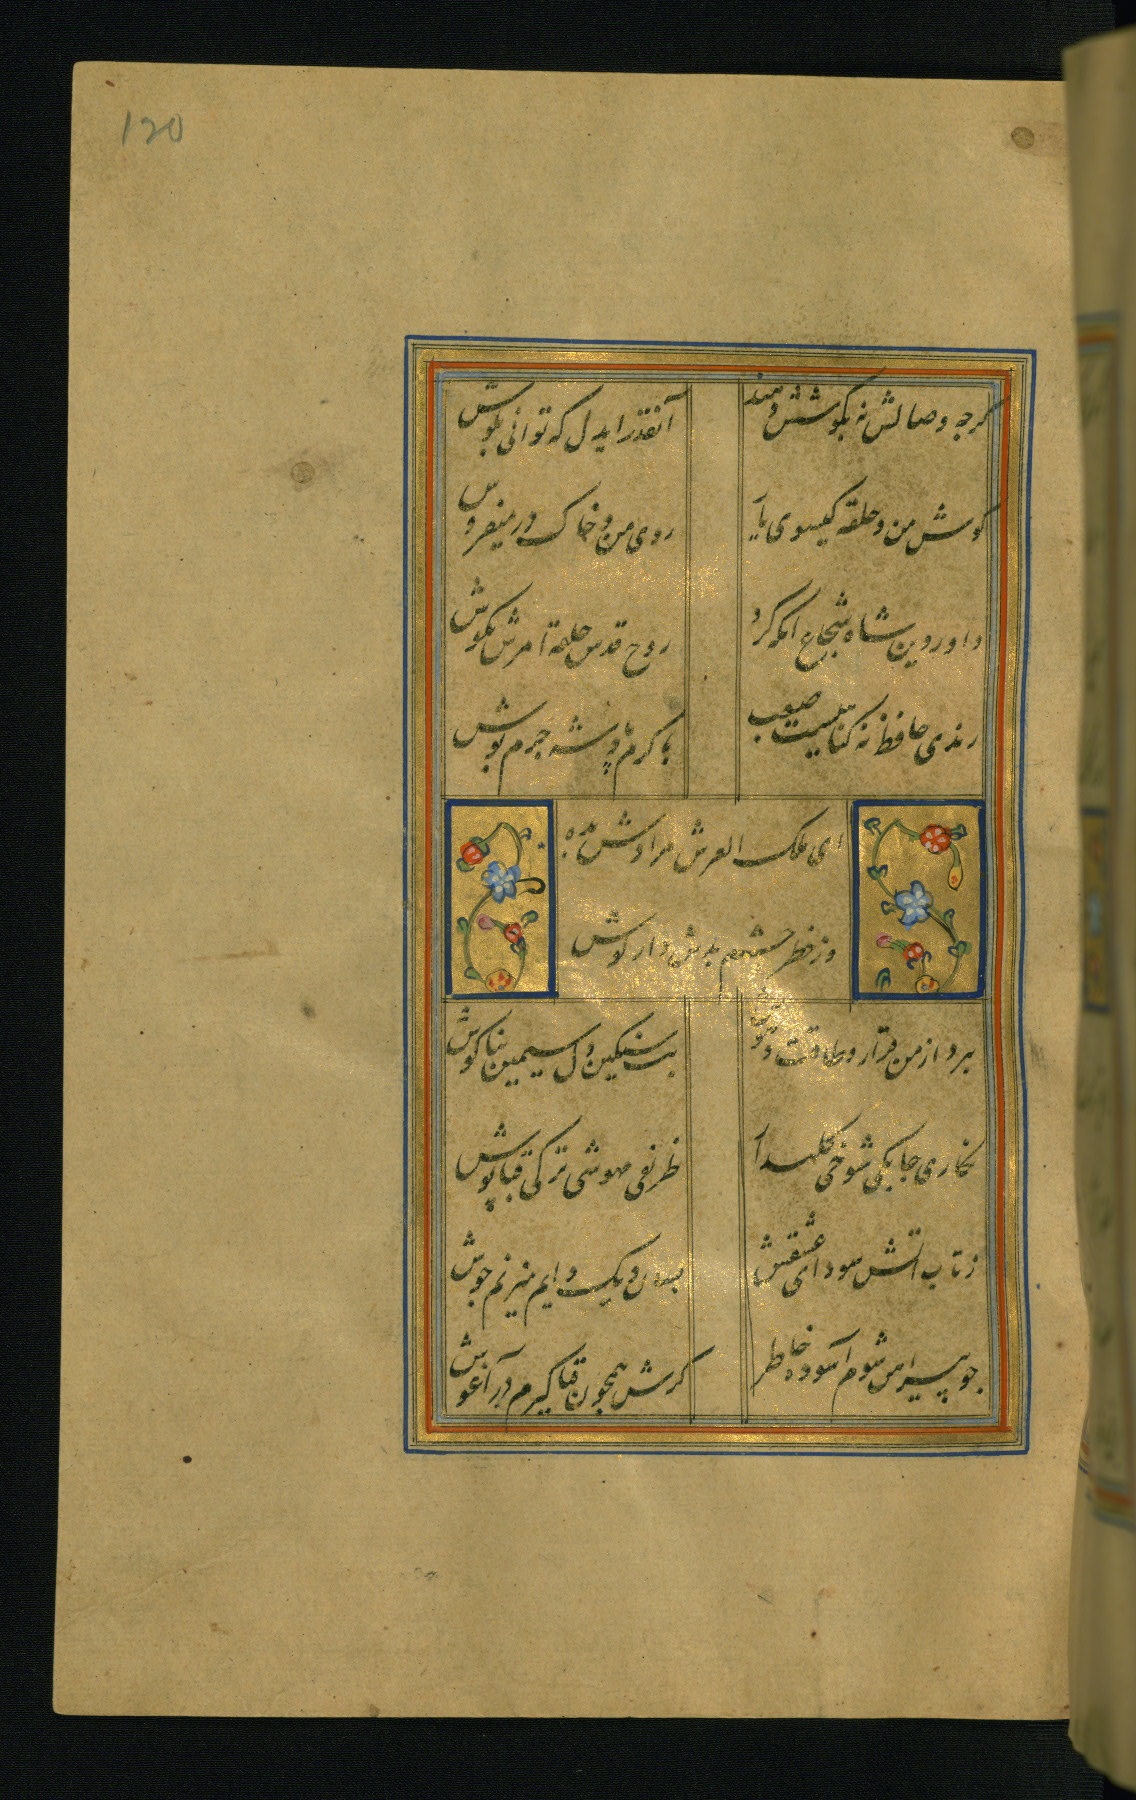 120
کرجه وصالش نه بکوشش دهند
آنقدر ایدل که توانی بکوش
کوش من و حلقه کیسوی یار
روی من و خاک در میفروش
داور دین شاه شجاع انکه کرد
روح قدس حلقه امرش بکوش
رندی حافظ نه کناهیست صعب
با کرم پادشه جرم پوش
ای ملک العرش مرادش بده
وز خطر چشم بدش دار کوش
ببرد از من قرار و طاقت و هوش
بت سنکین دل سیمین بناکوش
نکاری جابکی شوخی کلهدار
ظریفی مهوشی ترکی قباپوش
ز تاب اتش سودای عشقش
بسان دیک دایم میزنم جوش
جو پیراهن شوم آسوده خاطر
کرش همجون قبا کیرم در آغوش